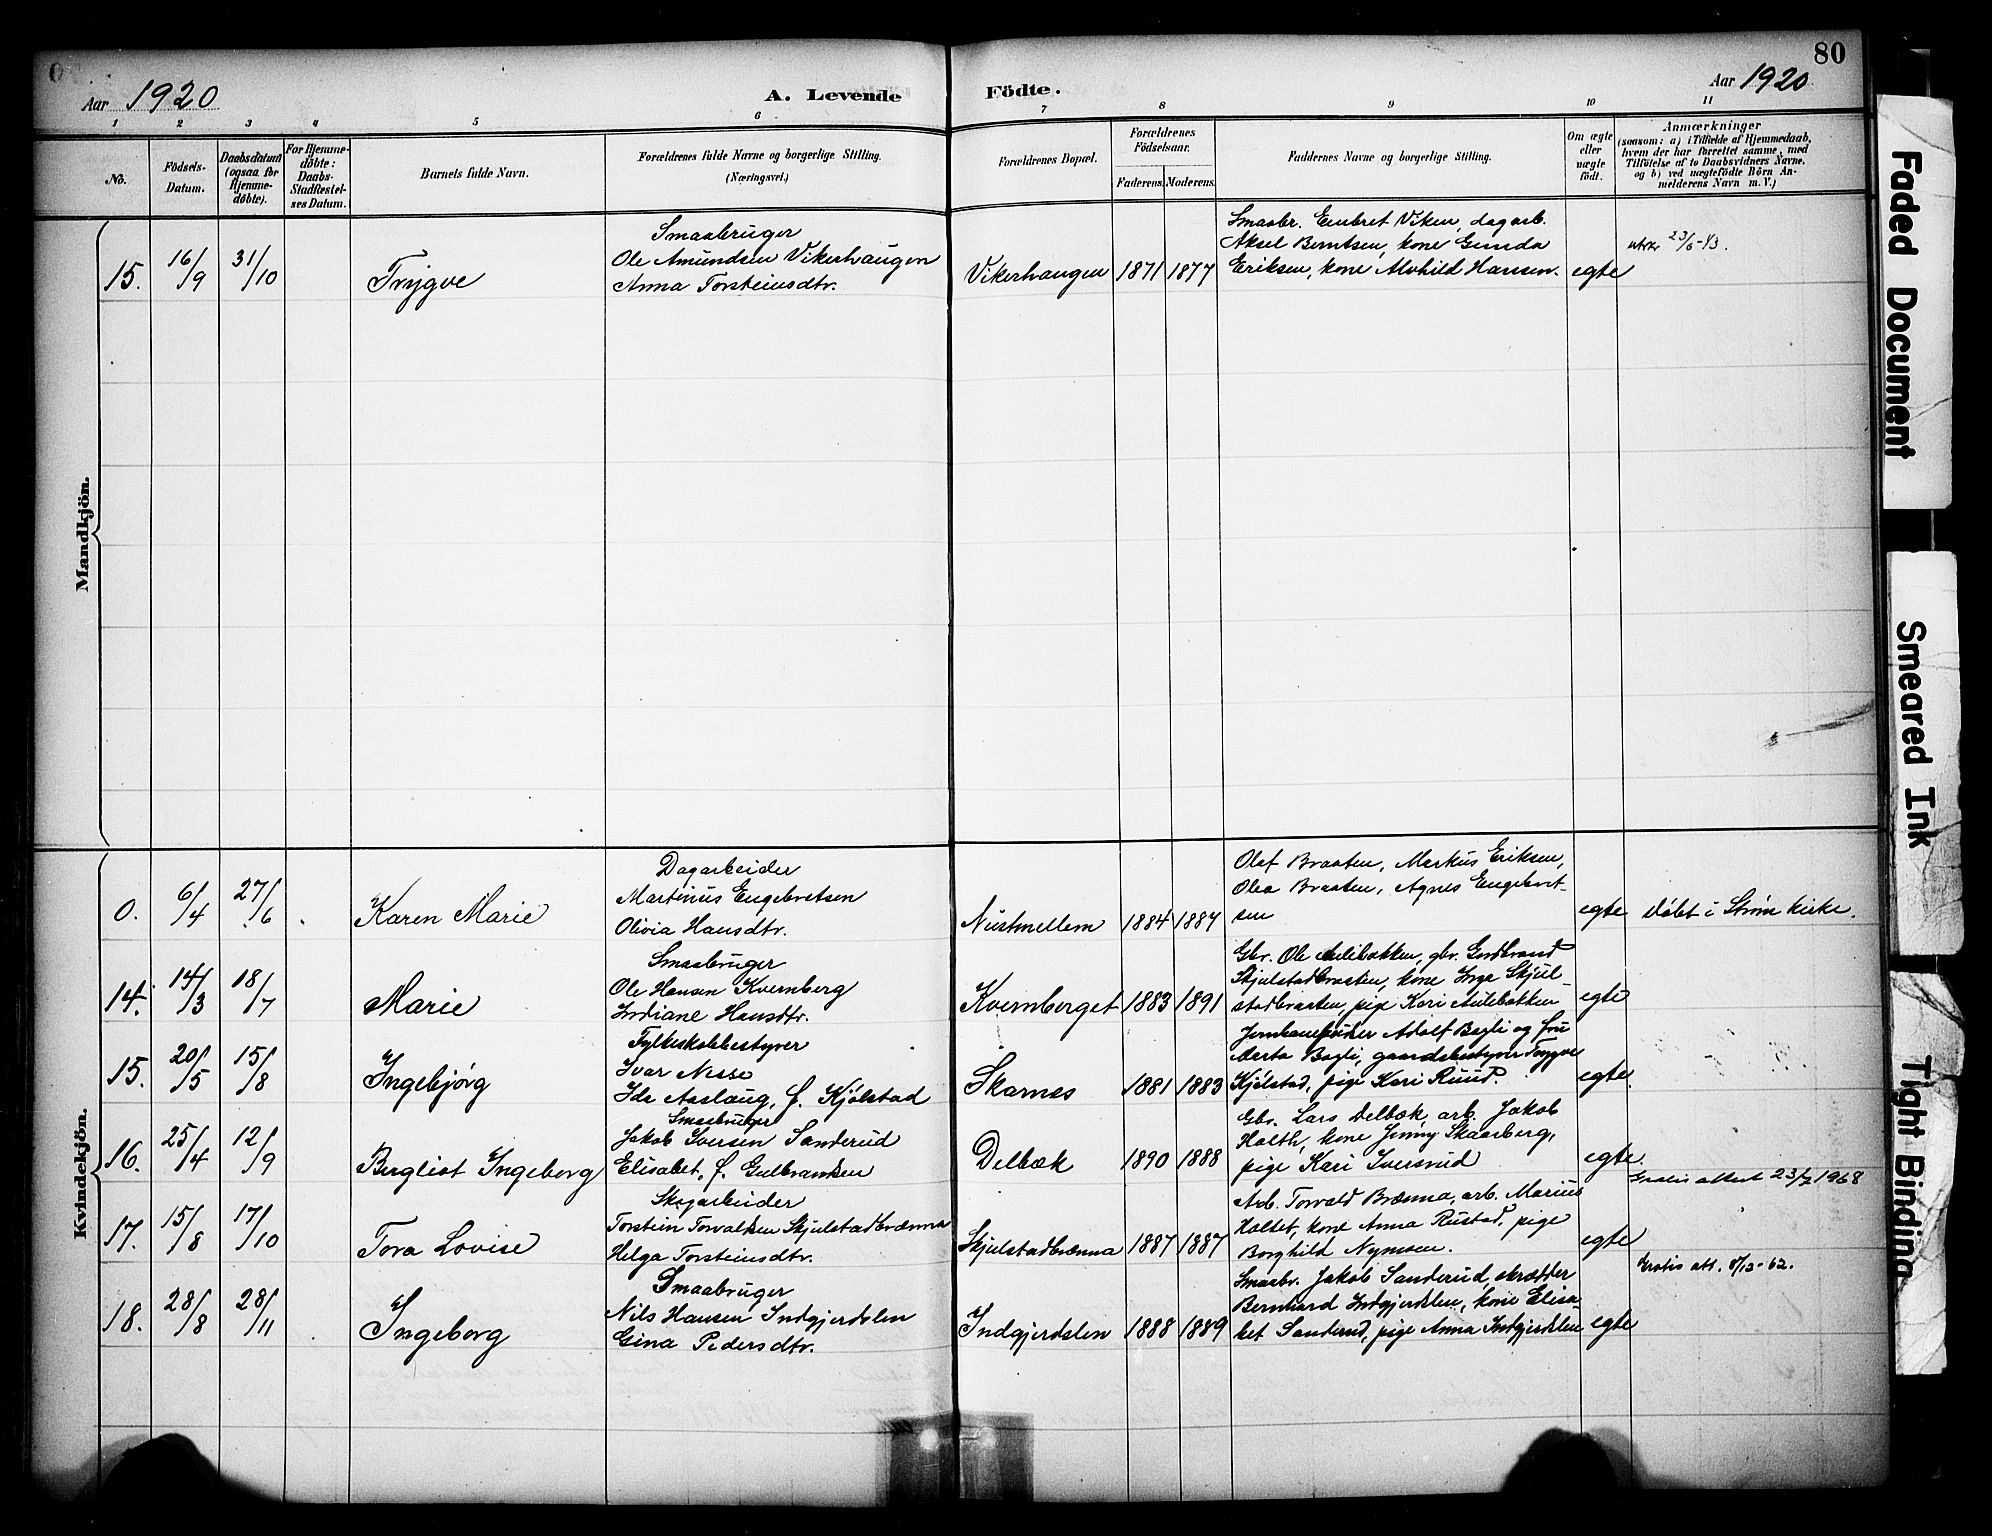 80
Aar 1920
A. Levende
Födte.
Aar 1920
1 2 3 4 5 6 7 8 9 10 11
No.
Födsels-
Datum.
Daabsdatum
(ogsaa for
Hjemme-
døbte).
For Hjemme-
döbte:
Daabs-
Stadfæstel-
ses Datum.
Barnets fulde Navn.
Forældrenes fulde Navne og borgerlige Stilling.
(Næringsvei.)
Forældrenes Bopæl.
Forældrenes
Födselsaar.
Faderens. Moderens.
Faddernes Navne og borgerlige Stilling.
Om ægte
eller
uægte
födt.
Anmærkninger
(saasom: a) i Tilfælde af Hjemmedaab,
hvem der har forrettet samme, med
Tilföielse af to Daabsvidners Navne,
og b) ved uægtefödte Börn An-
melderens Navn m. V.)
Mandkjön.
15. 16/9 31/10 Trygve
Smaabruger
Ole Amundsen Vikerhaugen
Anna Torsteinsdtr.
Vikerhaugen 1871 1877
Smaabr. Embret Viken, dagarb.
Aksel Berntsen, kone Gunda
Eriksen, kone Alvhild Hansen.
egte
23/6-43.
Kvindekjön.
0. 6/4 27/6 Karen Marie
Dagarbeider
Martinus Engebretsen
Olivia Hansdtr.
Nustmellem 1884 1887
Olaf Braaten, Markus Eriksen,
Olea Braaten, Agnes Engebret-
sen
egte Døbt i Strøm kirke.
14. 14/3 18/7 Marie
Smaabruger
Ole Hansen Kvernberg
Indiane Hansdtr.
Kvernberget 1883 1891
Gbr. Ole Aulibakken, gbr. Gudbrand
Skjulstadbraaten, kone Inga Skjul-
stadbraaten, pige Kari Aulibakken
egte
15. 20/5 15/8 Ingebjørg
Fylkeskolebestyrer
Ivar Nesse
Ida Aaslaug, f. Kjølstad
Skarnes 1881 1883
Adolf Bogli og fru
Bogli, gaardsbestyrer Trygve
Kjølstad, pige Kari Ruud.
egte.
16. 25/4 12/9 Bergliot Ingeborg
Smaabruger
Jakob Iversen Sanderud
Elisabet, f. Gulbrandsen
Delbæk 1890 1888
Gbr. Lars Delbæk, arb. Jakob
Holth, kone Jenny Skaarberg,
pige Kari Iversrud
egte.
Gratis attest 23/2 1968
17. 15/8 17/10 Tora Lovise
Skogarbeider
Torstein Torvaldsen Skjulstadbrænna
Helga Torsteinsdtr.
Skjulstadbrænna 1887 1887
Arb. Torvald Brænna, arb. Marius
Holtet, kone Anna Rustad, pige
Borghild Nymoen.
egte
Gratis att. 5/12-62.
18. 28/8 28/11 Ingeborg
Smaabruger
Nils Hansen Indgjerdslen
Gina Pedersdtr.
Indgjerdslen 1888 1889
Smaabr. Jakob Sanderud, skrædder
Bernhard Indgjerdslen, kone Elisa-
bet Sanderud, pige Anna Indgjerdslen
egte
Faded Document
Smeared Ink
Tight Binding